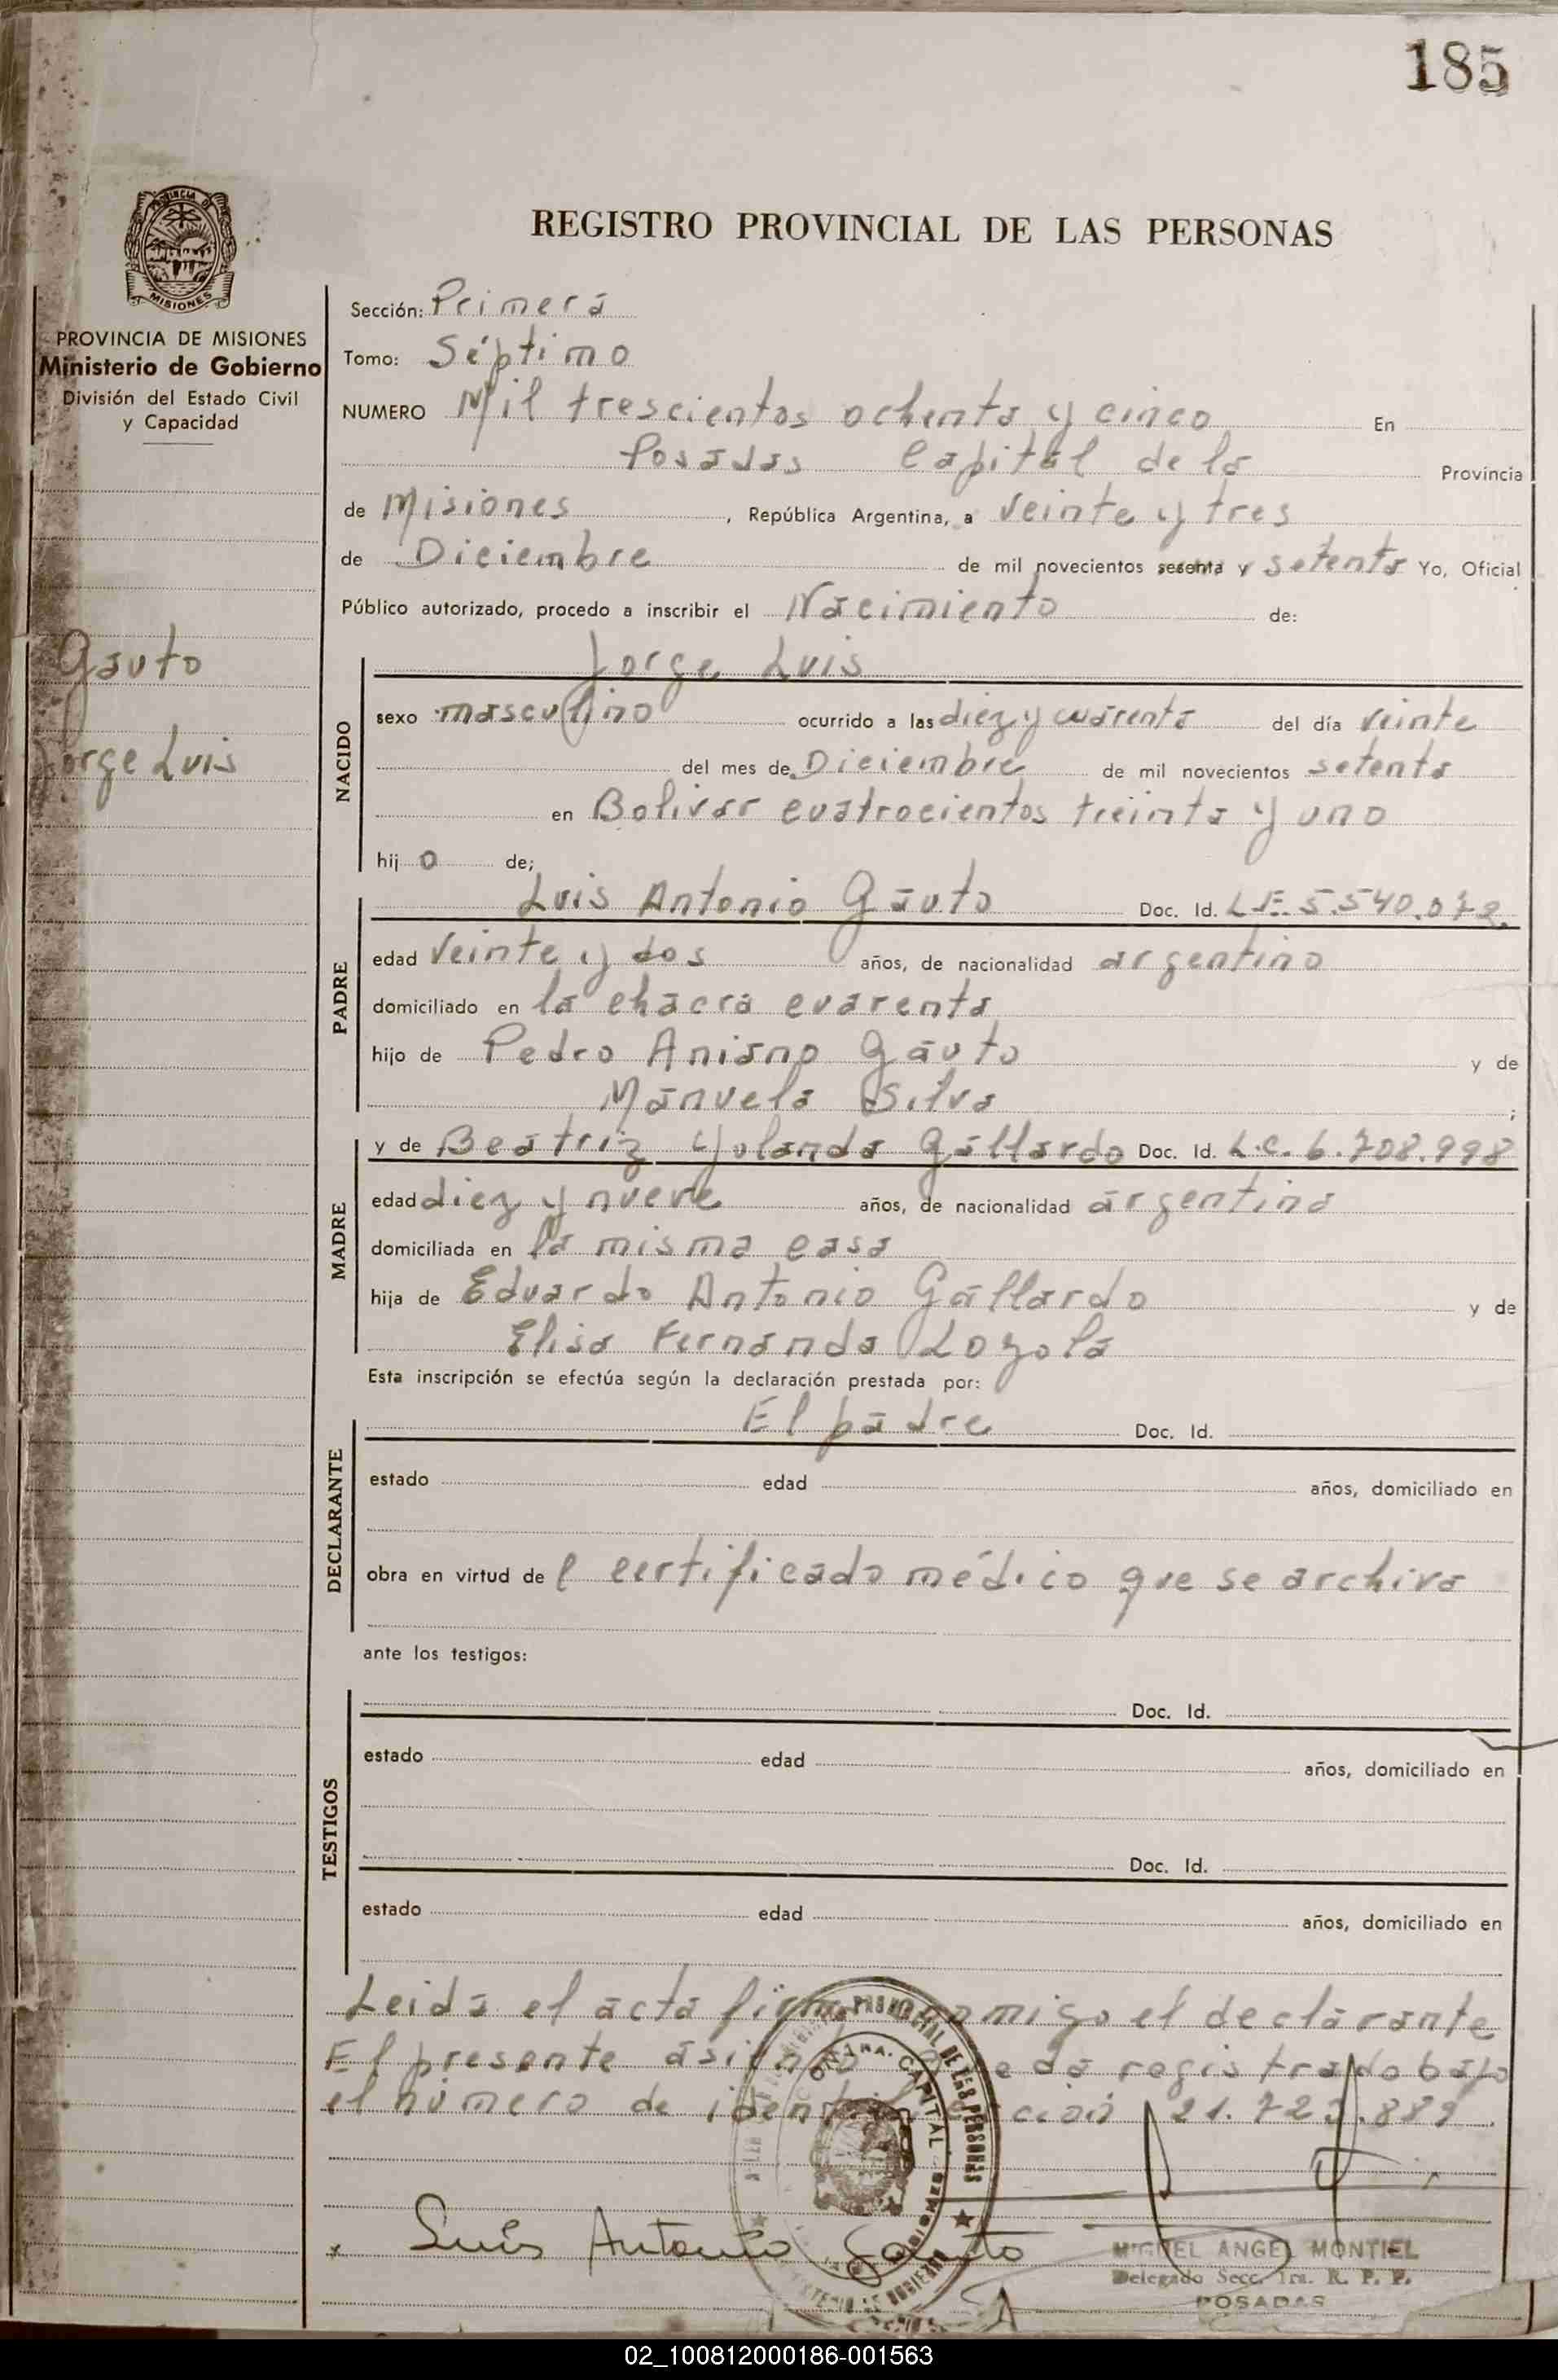 185
PROVINCIA DE
MISIONES
PROVINCIA DE MISIONES
Ministerio de Gobierno
División del Estado Civil
y Capacidad
Gauto
Jorge Luis
REGISTRO PROVINCIAL DE LAS PERSONAS
Sección: Primera
Tomo: Séptimo
NUMERO Mil trescientos ochenta y cinco En
Posadas Capital de la Provincia
de Misiones, República Argentina, a veinte y tres
de Diciembre de mil novecientos sesenta y setenta Yo, Oficial
Público autorizado, procedo a inscribir el Nacimiento de:
NACIDO
Jorge Luis
sexo masculino ocurrido a las diez y cuarenta del día veinte
del mes de Diciembre de mil novecientos setenta
en Bolivar cuatrocientos treinta y uno
hijo de;
PADRE
Luis Antonio Gauto Doc. Id. L.E. 5.540.072.
edad veinte y dos años, de nacionalidad argentino
domiciliado en la chacra cuarenta
hijo de Pedro Aniano Gauto y de
Manuela Silva ;
MADRE
y de Beatriz Yolanda Gallardo Doc. Id. L.C. 6.708.998
edad diez y nueve años, de nacionalidad argentina
domiciliada en la misma casa
hija de Eduardo Antonio Gallardo y de
Elisa Fernanda Loyola
Esta inscripción se efectúa según la declaración prestada por:
DECLARANTE
El padre Doc. Id.
estado edad años, domiciliado en
obra en virtud de l certificado médico que se archiva
ante los testigos:
TESTIGOS
Doc. Id.
estado edad años, domiciliado en
Doc. Id.
estado edad años, domiciliado en
Leida el acta firma conmigo el declarante
El presente asiento queda registrado bajo
el número de identificación 21.723.889.
Luis Antonio Gauto
MIGUEL ANGEL MONTIEL
Delegado Secc. 1ra. R. P. P.
POSADAS
02_100812000186-001563